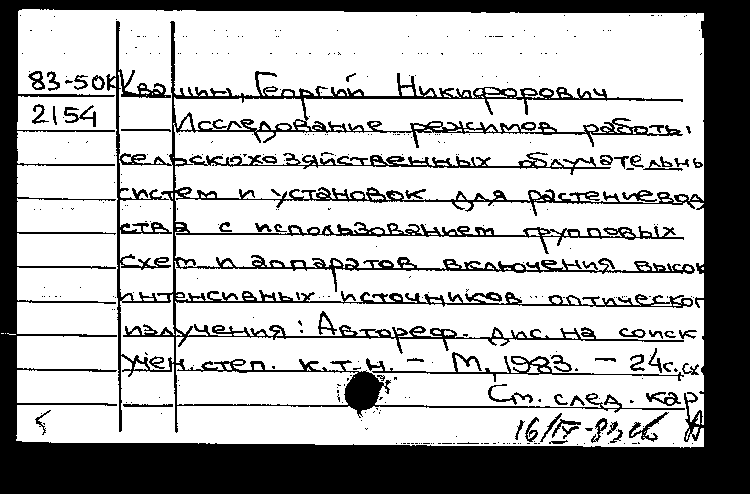 83-50К Квашин, Георгий Никифорович
2154 Исследование режимов работы
сельскохозяйственных облучательны
систем и установок для растениевод
ства с использованием групповых
схем и аппаратов включения высок
интенсивных источников оптическог
излучения: Автореф. дис. на соиск.
учен. степ. к.т.н. - М., 1983. - 24с, сх
См. след. кар
16/IV-83